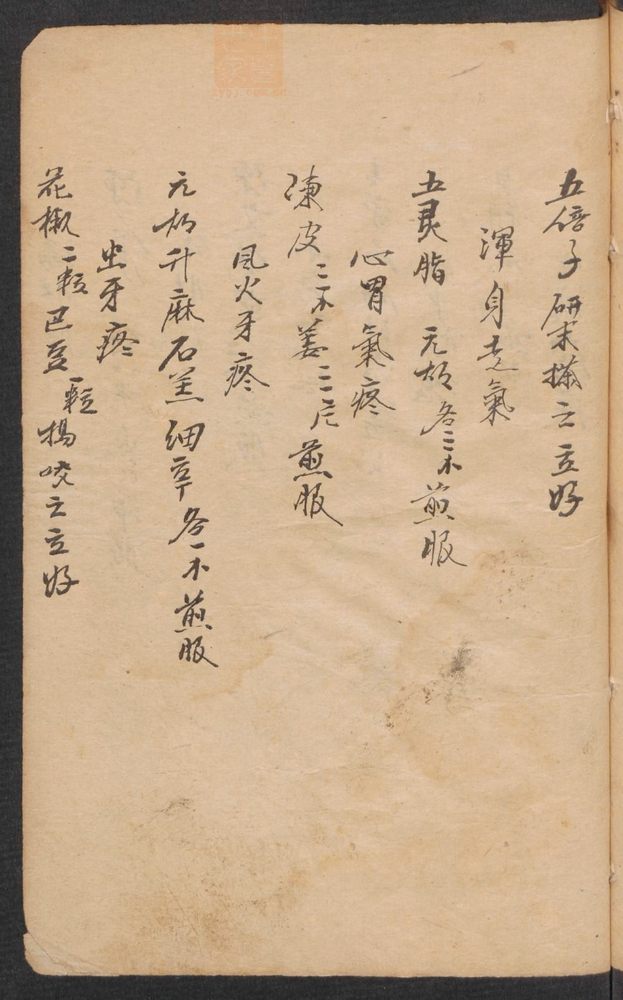 五倍子研末搽之立好
渾身走氣
五灵脂 元胡各三木煎服
心胃氣疼
陳皮三木姜三片煎服
風火牙疼
元胡升麻石羔細辛各一木煎服
虫牙疼
花椒二粒巴豆一粒搗咬之立好